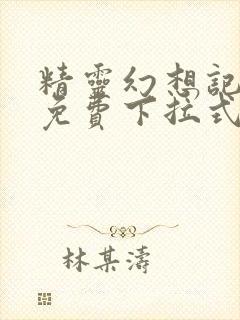 精靈幻想記
免費下拉式
林某濤